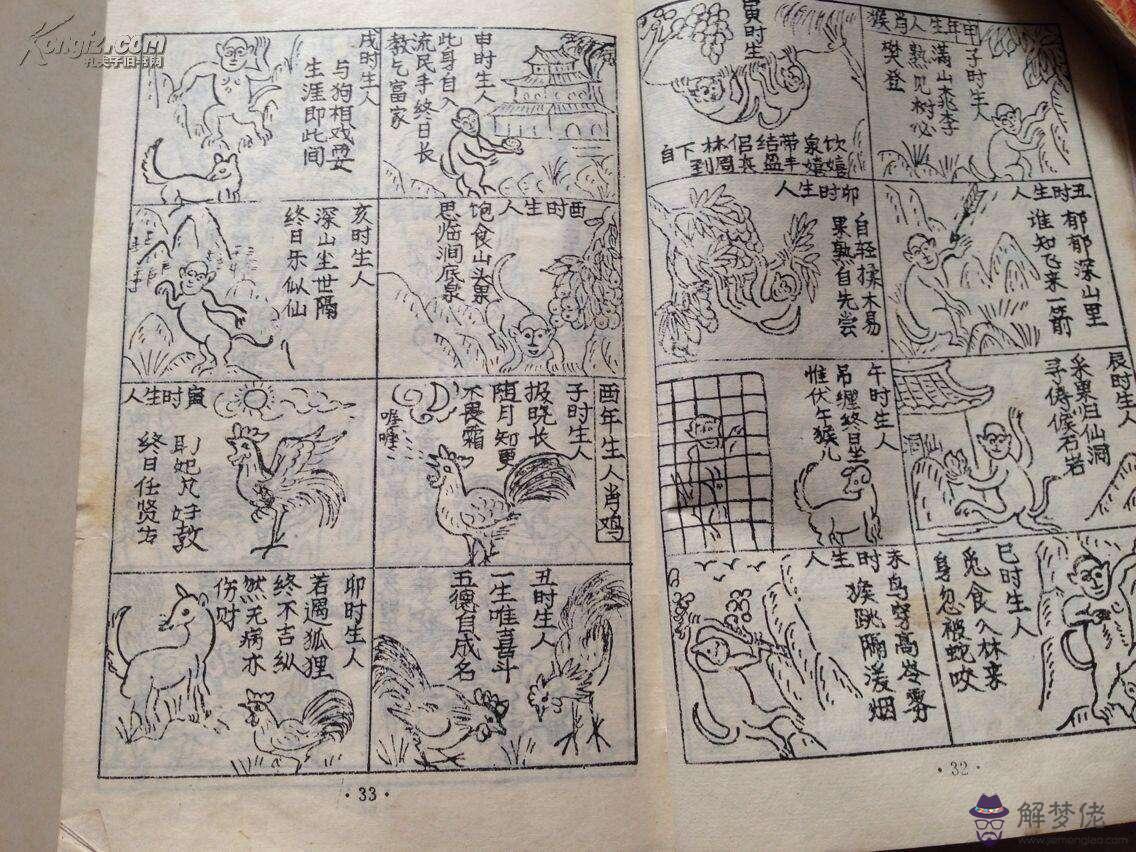 申年生人肖猴
子时生人
满山桃李
熟见树必
樊登
寅时生人
饮泉带结侣林下自
嬉嬉丰盈来周到
丑时生人
郁郁深山里
谁知飞来一箭
卯时生人
自轻揉木易
果熟自先尝
辰时生人
采果归仙洞
寻待候石岩
洞仙
午时生人
吊缠终日坐
惟伏午猴儿
巳时生人
觅食入林来
身忽被蛇咬
未时生人
鸟穿高岭雾
猴跳隔湲烟
·32·
申时生人
此身自入
流民手终日长
教乞富家
戌时生人
与狗相戏耍
生涯即此间
酉时生人
饱食山头果
思临涧底泉
亥时生人
深山尘世隔
终日乐似仙
酉年生人肖鸡
子时生人
报晓长
随月知更
不畏霜
喔喔
寅时生人
终日任贤
丑时生人
一生唯喜斗
五德自成名
卯时生人
若遇狐狸
终不吉纵
然无病亦
伤财
·33·
Kongfz.com
孔夫子旧书网
解梦佬
www.jiemenglao.com